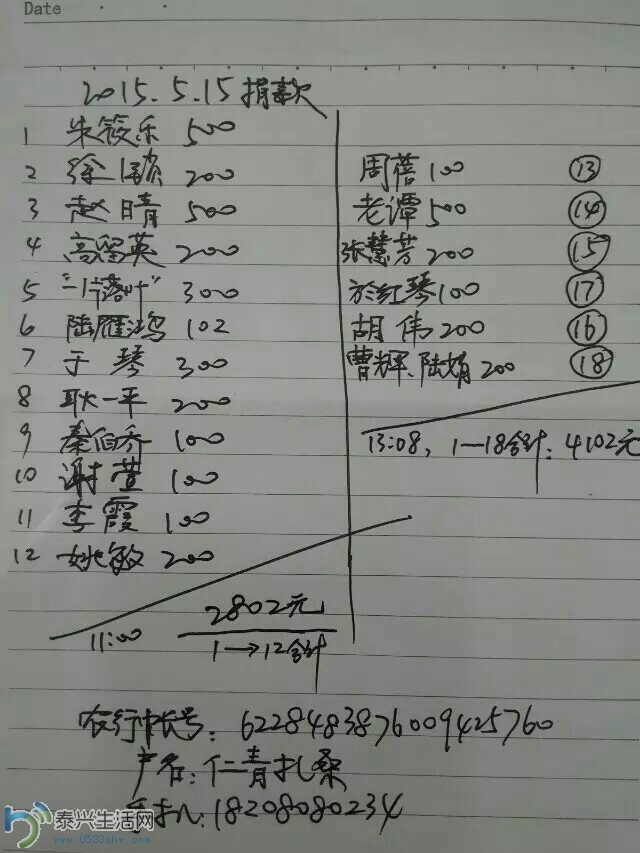 Date
2015.5.15 捐款
1 朱筱乐 500
2 徐滨 200
3 赵晴 500
4 高留英 200
5 "一片落叶" 300
6 陆雁鸿 102
7 于琴 300
8 耿一平 200
9 秦伯乔 100
10 谢萱 100
11 李霞 100
12 姚敏 200
11:00 2802元
1→12合计
周蓓 100 ⑬
老谭 500 ⑭
张慧芳 200 ⑮
於红琴 100 ⑰
胡伟 200 ⑯
曹辉、陆娟 200 ⑱
13:08, 1—18合计: 4102元
农行帐号: 6228483876009425760
户名: 仁青扎桑
手机: 18208080234
泰兴生活网
www.0523shw.com